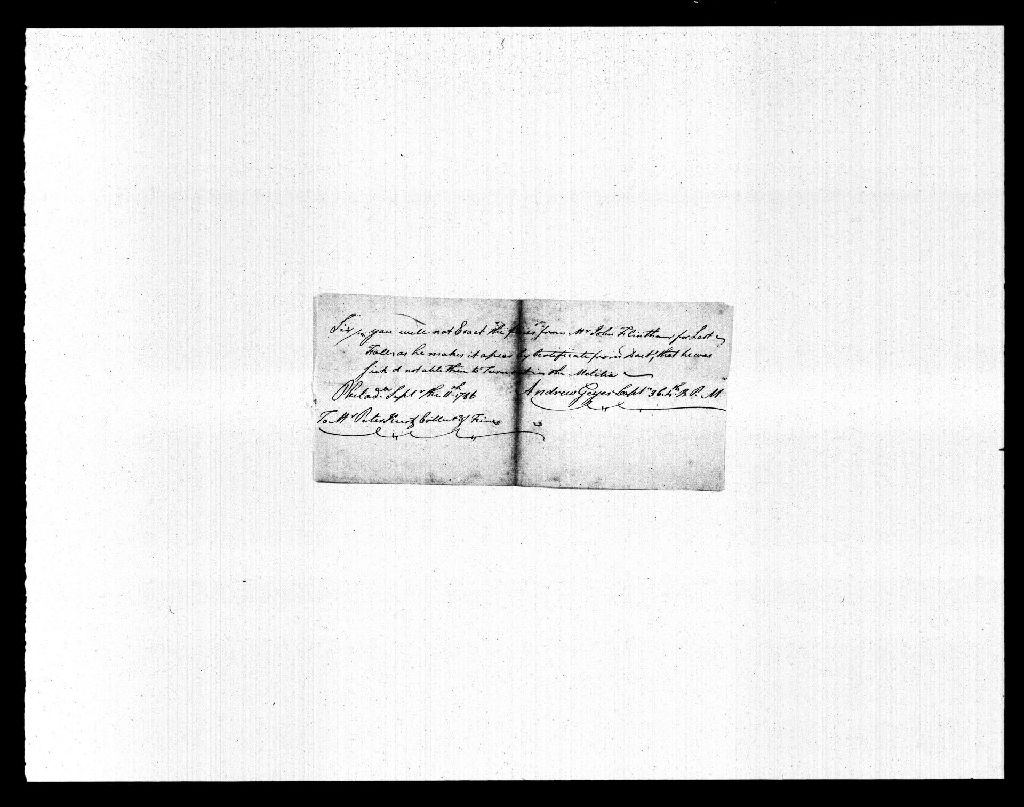 Sir, you will not Exact the fines from Mr John Flintham for Last
Fall, as he makes it apear by Certificate from Doctr that he was
sick & not able then to turn out in the Melitia
Philada Septr the 11th 1786 Andrew Geyer Capt 3d 4th B. P. M
To Mr Peter Collr of Fines